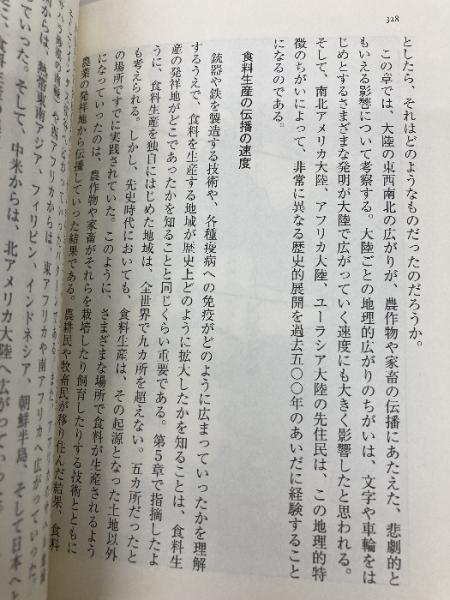 328
としたら、それはどのようなものだったのだろうか。
この章では、大陸の東西南北の広がりが、農作物や家畜の伝播にあたえた、悲劇的と
もいえる影響について考察する。大陸ごとの地理的広がりのちがいは、文字や車輪をは
じめとするさまざまな発明が大陸で広がっていく速度にも大きく影響したと思われる。
そして、南北アメリカ大陸、アフリカ大陸、ユーラシア大陸の先住民は、この地理的特
徴のちがいによって、非常に異なる歴史的展開を過去五〇〇年のあいだに経験すること
になるのである。
食料生産の伝播の速度
銃器や鉄を製造する技術や、各種疫病への免疫がどのように広まっていったかを理解
するうえで、食料を生産する地域が歴史上どのように拡大したかを知ることは、食料生
産の発祥地がどこであったかを知ることと同じくらい重要である。第5章で指摘したよ
うに、食料生産を独自にはじめた地域は、全世界で九カ所を超えない。五カ所だったと
も考えられる。しかし、先史時代においても、食料生産は、その起源となった土地以外
の場所ですでに実践されていた。このように、さまざまな場所で食料が生産されるよう
になっていったのは、農作物や家畜がそれらを栽培したり飼育したりする技術とともに
農業の発祥地から伝播していった結果である。農耕民や牧畜民が移り住んだ結果、食料
アフリカからは、東アフリカや南アフリカへ広がっていった。
からは、熱帯東南アジア、フィリピン、インドネシア、朝鮮半島、そして日本へと
っていった。そして、中米からは、北アメリカ大陸へ広がっていった